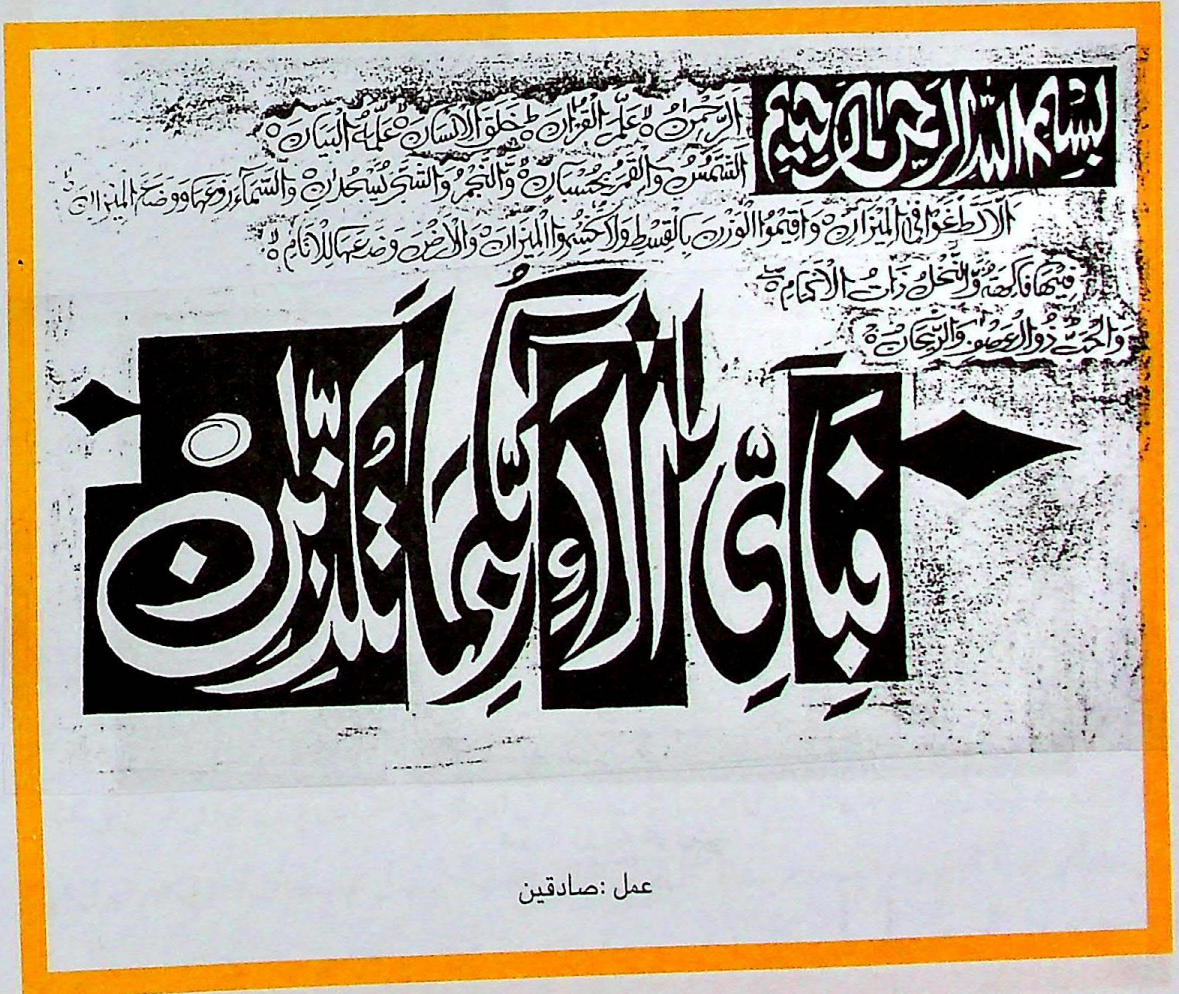 بِسْمِ اللّٰهِ الرَّحْمٰنِ الرَّحِيْمِ
اَلرَّحْمٰنُ عَلَّمَ الْقُرْاٰنَ خَلَقَ الْاِنْسَانَ عَلَّمَهُ الْبَيَانَ
اَلشَّمْسُ وَالْقَمَرُ بِحُسْبَانٍ وَّالنَّجْمُ وَالشَّجَرُ يَسْجُدٰنِ وَالسَّمَآءَ رَفَعَهَا وَوَضَعَ الْمِيْزَانَ
اَلَّا تَطْغَوْا فِى الْمِيْزَانِ وَاَقِيْمُوا الْوَزْنَ بِالْقِسْطِ وَلَا تُخْسِرُوا الْمِيْزَانَ وَالْاَرْضَ وَضَعَهَا لِلْاَنَامِ
فِيْهَا فَاكِهَةٌ وَّالنَّخْلُ ذَاتُ الْاَكْمَامِ
وَالْحَبُّ ذُو الْعَصْفِ وَالرَّيْحَانُ
فَبِاَىِّ اٰلَآءِ رَبِّكُمَا تُكَذِّبٰنِ
عمل :صادقين